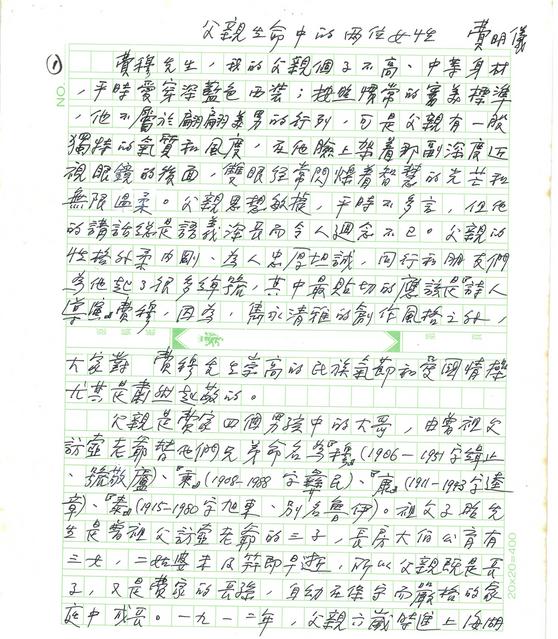 父親生命中的兩位女性 費明儀
①
NO.
費穆先生，我的父親個子不高、中等身材
，平時愛穿深藍色西裝；按照慣常的審美標準
，他不屬於翩翩美男的行列，可是父親有一股
獨特的氣質和風度，在他臉上架着那副深度近
視眼鏡的後面，雙眼經常閃爍着智慧的光芒和
無限溫柔。父親思想敏捷，平時不多言，但他
的講話總是語義深長而令人迴念不已。父親的
性格外柔內剛、為人忠厚切誠，同行和朋友們
為他起了很多綽號，其中最貼切的應該是『詩人
導演』費穆，因為，雋永清雅的創作風格之外，
大家對 費穆先生崇高的民族氣節和愛國情操
尤其是肅然起敬的。
父親是費家四個男孩中的大哥，由曾祖父
訪壺老爺替他們兄弟命名為『穆』(1906－1951字緝止
、號敬廬)、『秉』(1908－1988 字彝民)、『康』(1911－1943字逵
章)、『泰』(1915－1980字旭東、別名魯伊)。祖父子怡先
生是曾祖父訪壺老爺的三子，長房大伯公育有
三女，二姑婆未及笄即早逝，所以父親既是長
子，又是費家的長孫，自幼在保守而嚴格的家
庭中成長。一九一二年，父親六歲時進上海湖
20x20=400